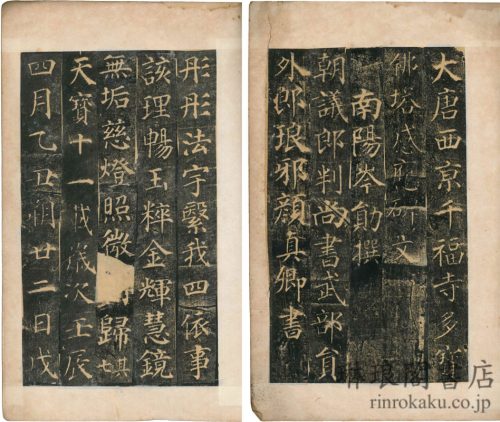 大唐西亰千福寺多寶
佛塔感應碑文
南陽岑勛撰
朝議郎判尚書武部員
外郎琅邪顏真卿書
彤彤法宇繫我四依事
該理暢玉粹金輝慧鏡
無垢慈燈照微歸其七
天寶十一載歲次壬辰
四月乙丑朔廿二日戊
琳琅閣書店
rinrokaku.co.jp